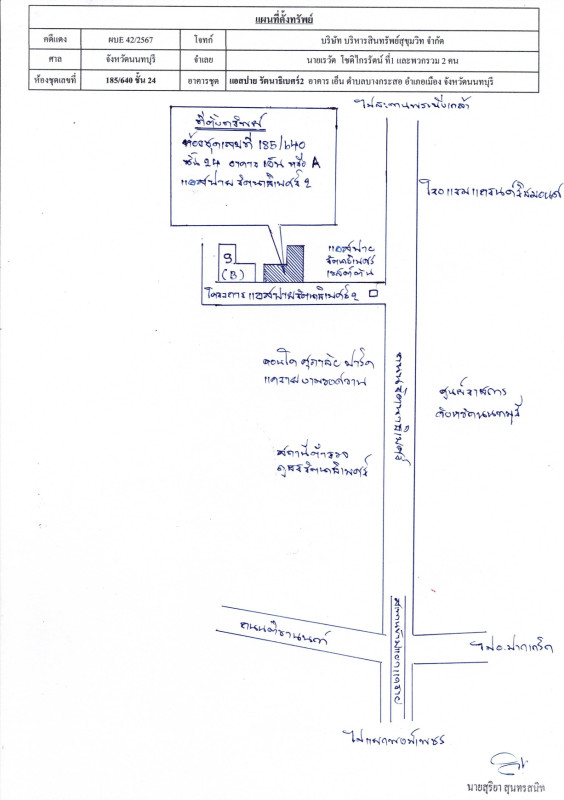 แผนที่ตั้งทรัพย์
คดีแดง ผบE 42/2567 โจทก์ บริษัท บริหารสินทรัพย์สุขุมวิท จำกัด
ศาล จังหวัดนนทบุรี จำเลย นายเรวัต โชติไกรรัตน์ ที่1 และพวกรวม 2 คน
ห้องชุดเลขที่ 185/640 ชั้น 24 อาคารชุด แอสปาย รัตนาธิเบศร์2 อาคาร เอ็น ตำบลบางกระสอ อำเภอเมือง จังหวัดนนทบุรี
ไปสะพานพระนั่งเกล้า
ที่ตั้งทรัพย์
ห้องชุดเลขที่ 185/640
ชั้น 24 อาคาร เอ็น หรือ A
แอสปาย รัตนาธิเบศร์ 2
โรงแรมแกรนด์ริชมอนด์
แอสปาย
รัตนาธิเบศร์
S
(B)
โครงการ แอสปายรัตนาธิเบศร์ 2
คอนโด ศุภาลัย ปาร์ค
แคราย งามวงศ์วาน
ถนนรัตนาธิเบศร์
ศูนย์ราชการ
จังหวัดนนทบุรี
สถานีตำรวจ
ภูธรรัตนาธิเบศร์
สะพานข้ามแยกแคราย
ถนนติวานนท์
ไปอ.ปากเกร็ด
ไปแยกพงษ์เพชร
นายสุริยา สุนทรสนิท